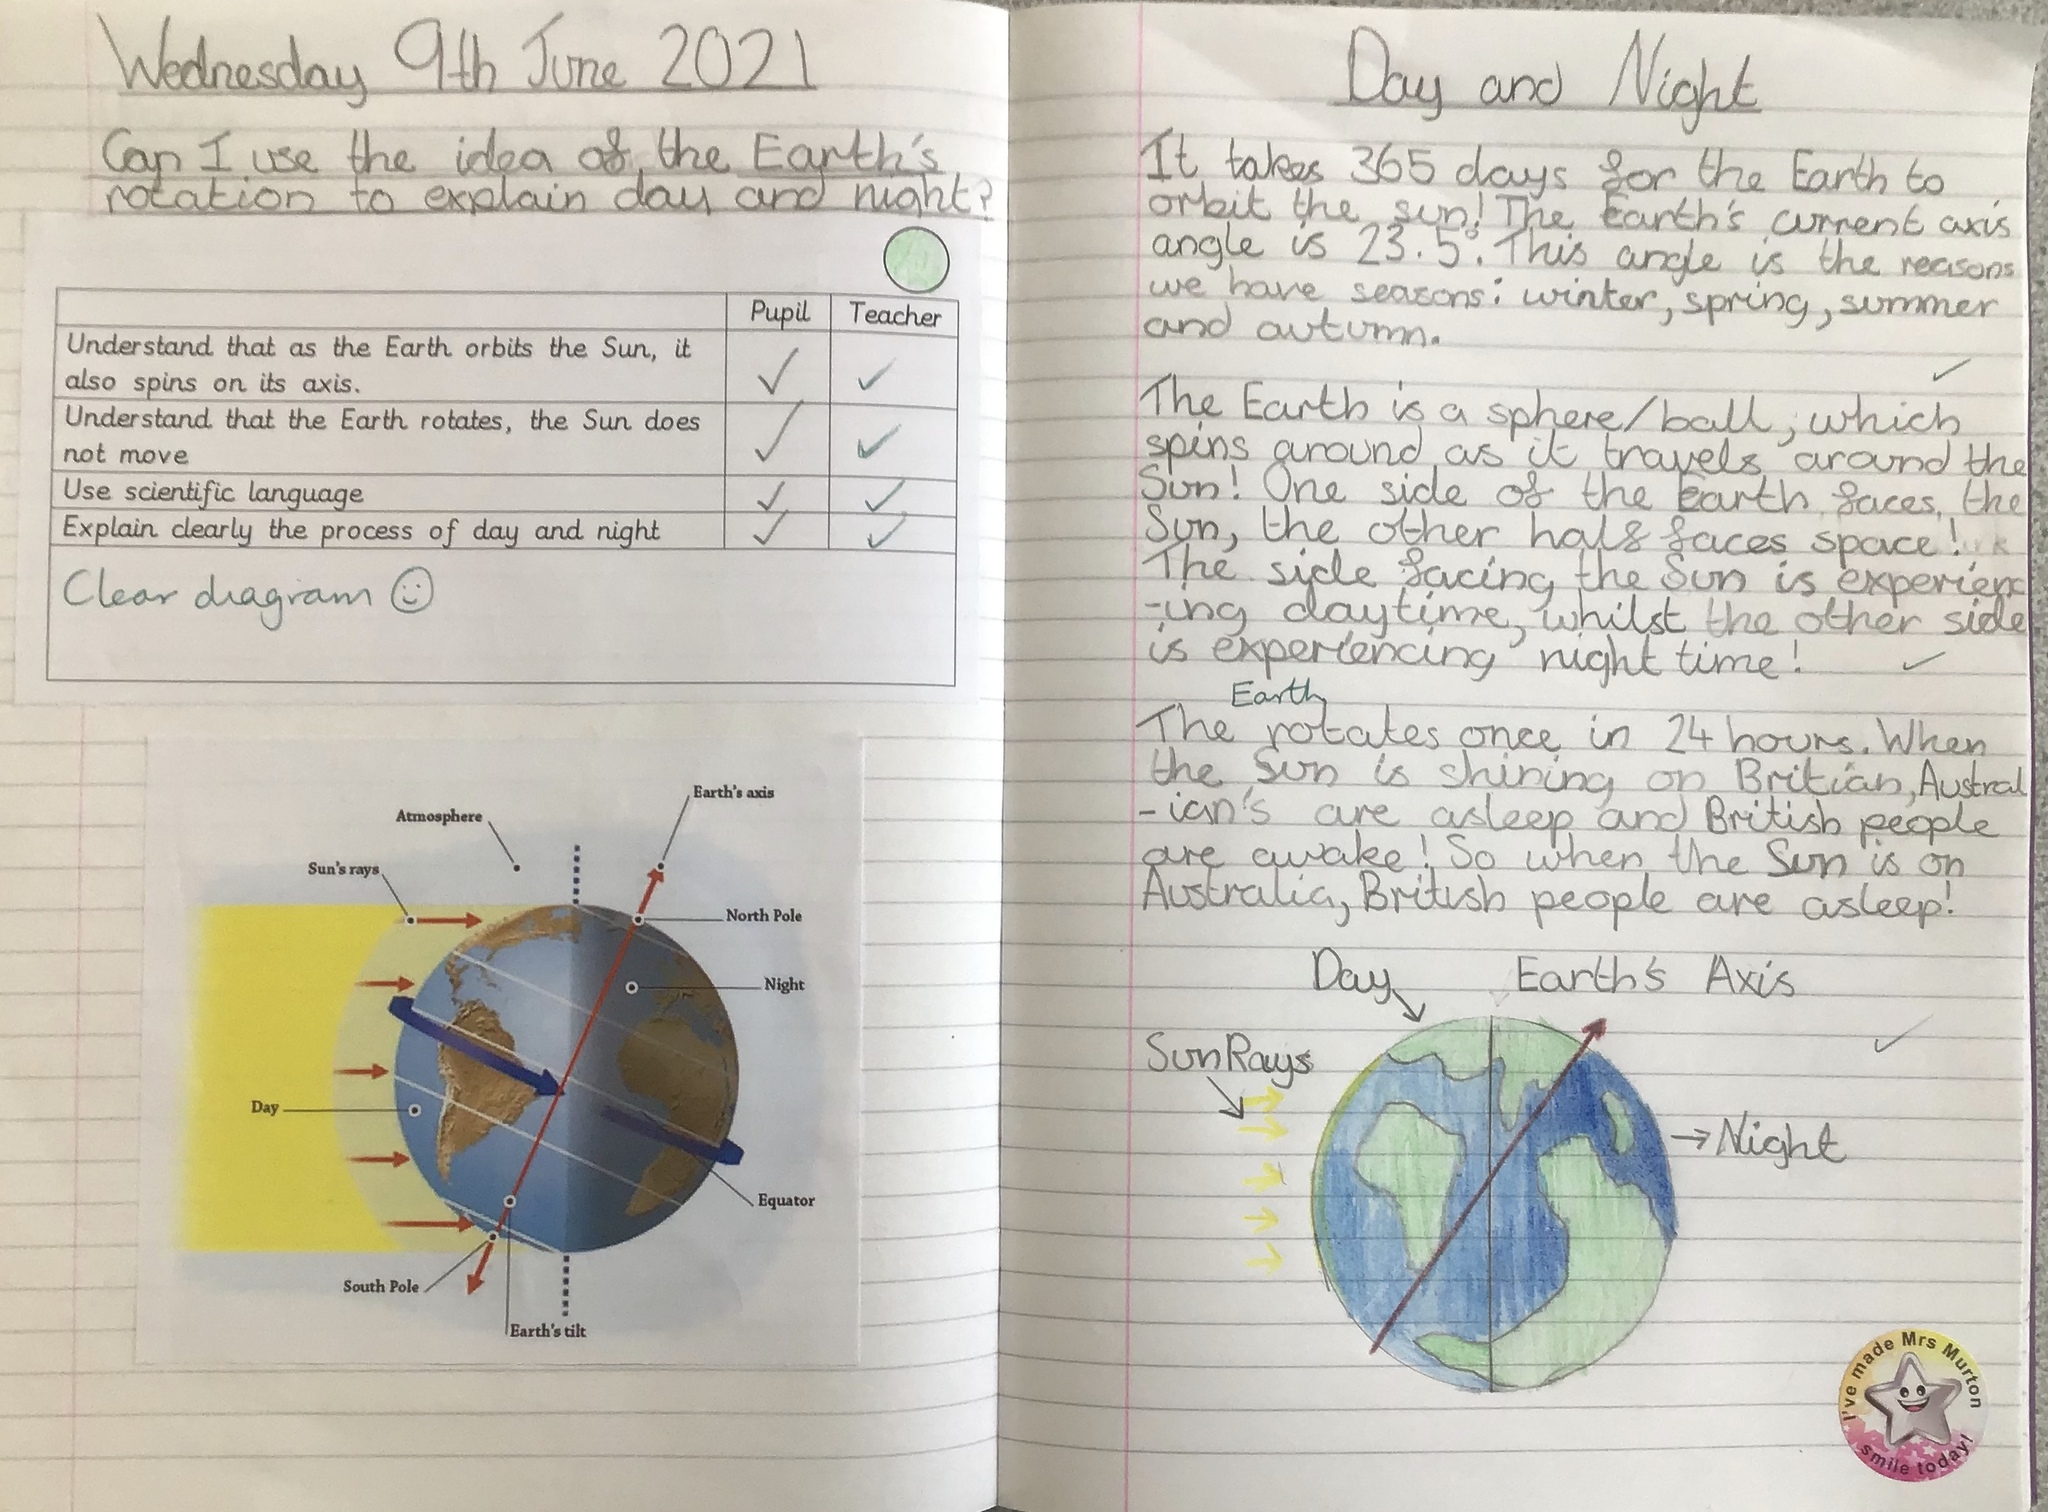 Wednesday 9th June 2021
Can I use the idea of the Earth's
rotation to explain day and night?
Pupil Teacher
Understand that as the Earth orbits the Sun, it
also spins on its axis.
Understand that the Earth rotates, the Sun does
not move
Use scientific language
Explain clearly the process of day and night
Clear diagram
Earth's axis
Atmosphere
Sun's rays
North Pole
Night
Day
Equator
South Pole
Earth's tilt
Day and Night
It takes 365 days for the Earth to
orbit the sun! The Earth's current axis
angle is 23.5°. This angle is the reasons
we have seasons: winter, spring, summer
and autumn.
The Earth is a sphere/ball, which
spins around as it travels around the
Sun! One side of the Earth faces the
Sun, the other half faces space!
The side facing the Sun is experienc
-ing daytime, whilst the other side
is experiencing night time!
Earth
The rotates once in 24 hours. When
the Sun is shining on Britian, Austral
-ian's are asleep and British people
are awake! So when the Sun is on
Australia, British people are asleep!
Day Earth's Axis
Sun Rays
Night
I've made Mrs Murton
smile today!